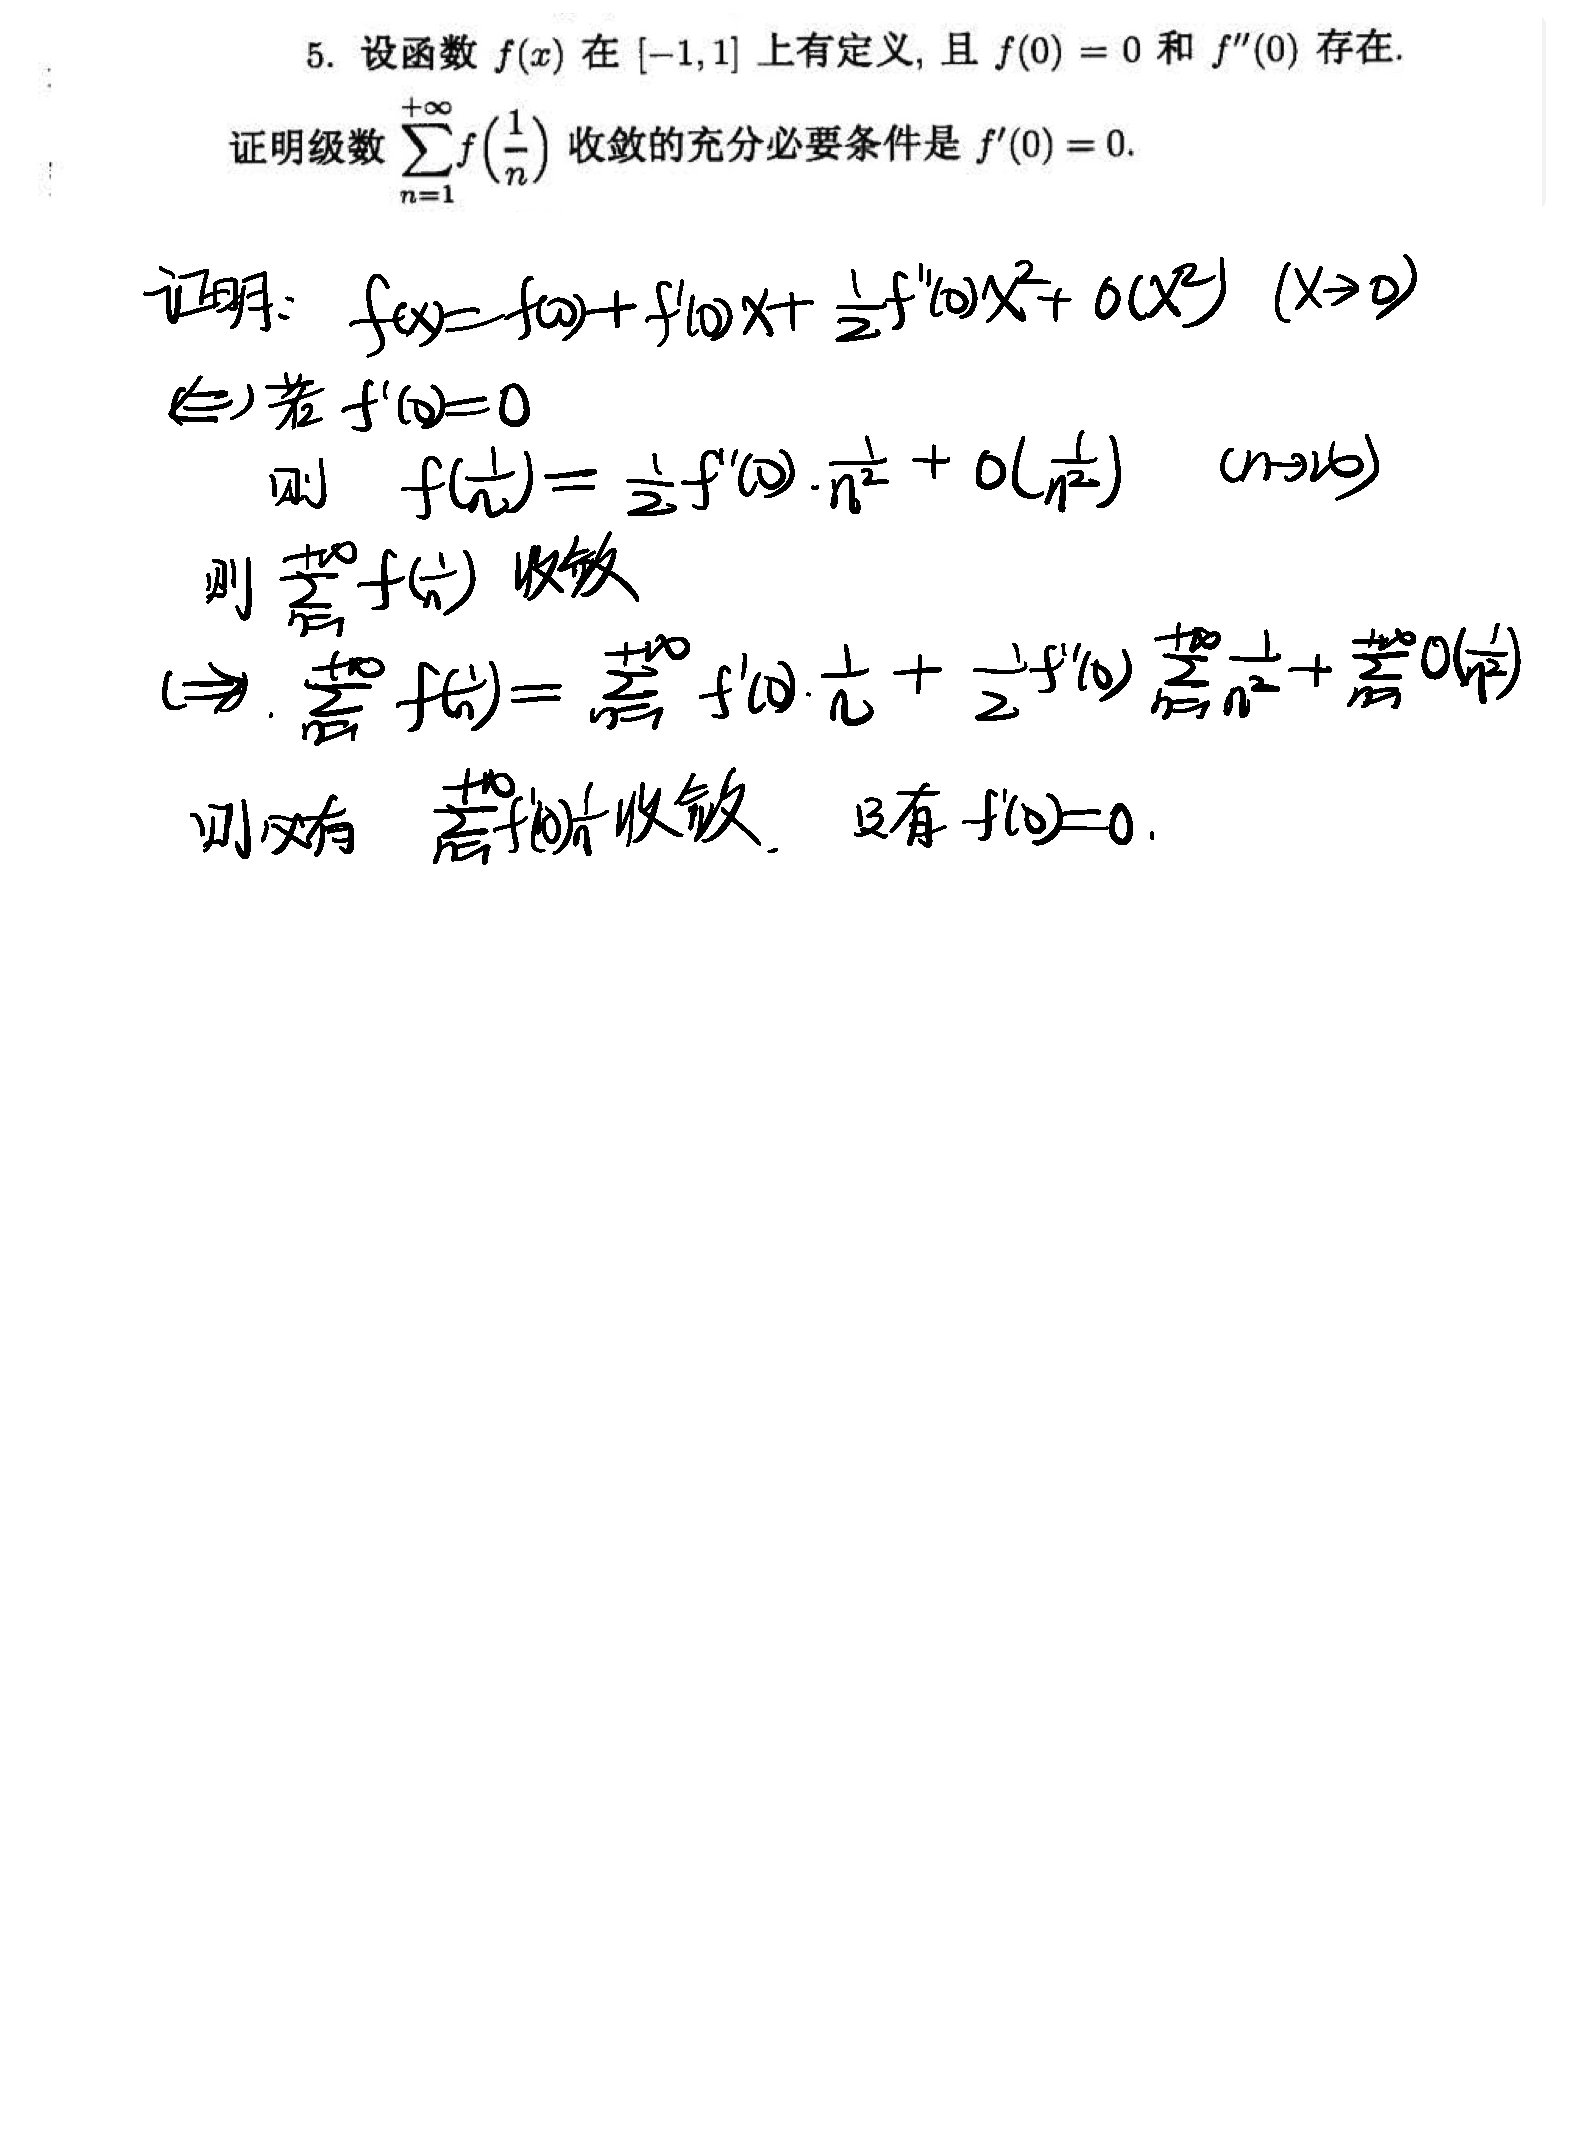 5. 设函数 f(x) 在 [−1, 1] 上有定义, 且 f(0) = 0 和 f″(0) 存在.
证明级数 \sum_{n=1}^{+∞} f(\frac{1}{n}) 收敛的充分必要条件是 f′(0) = 0.
证明: f(x)=f(0)+f'(0)x+\frac{1}{2}f''(0)x²+o(x²) (x→0)
(⇐) 若 f'(0)=0
则 f(\frac{1}{n})=\frac{1}{2}f''(0)·\frac{1}{n²}+o(\frac{1}{n²}) (n→∞)
则 \sum_{n=1}^{+∞} f(\frac{1}{n}) 收敛
(⇒). \sum_{n=1}^{+∞} f(\frac{1}{n})=\sum_{n=1}^{+∞} f'(0)·\frac{1}{n}+\frac{1}{2}f''(0)\sum_{n=1}^{+∞}\frac{1}{n²}+\sum_{n=1}^{+∞}o(\frac{1}{n²})
则必有 \sum_{n=1}^{+∞} f'(0)\frac{1}{n} 收敛. 只有 f'(0)=0.